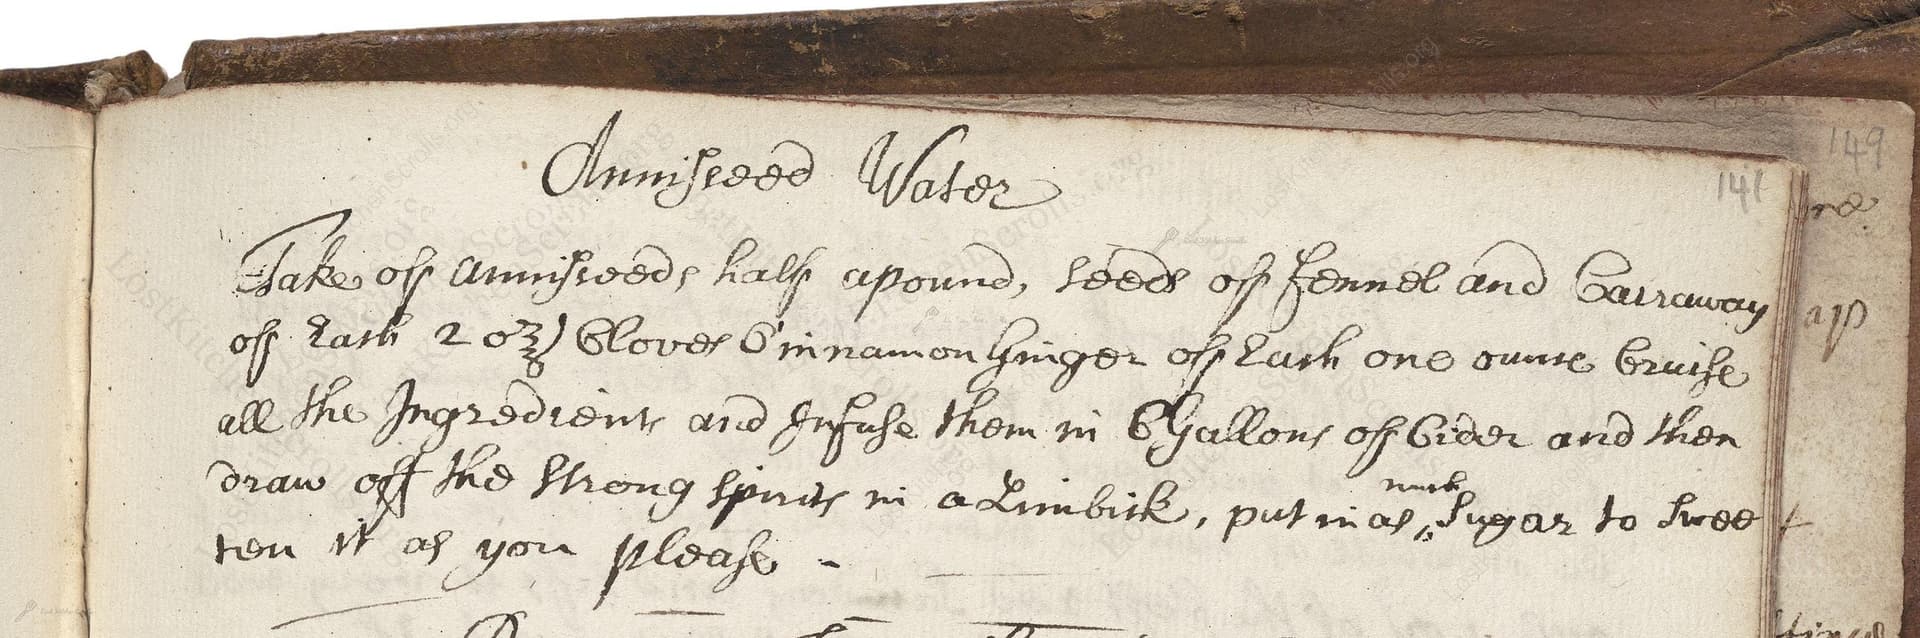 Anniseed Water
141
149
Take off Anniseeds half a pound, seeds off fennel and Carraway
off Each 2 oz) Cloves Cinnamon Ginger off Each one ounce Bruise
all the Ingredients and Infuse them in 6 Gallons off Cider and then
draw off the strong spirits in a Limbick, put in as much Sugar to swee
ten it as you please -